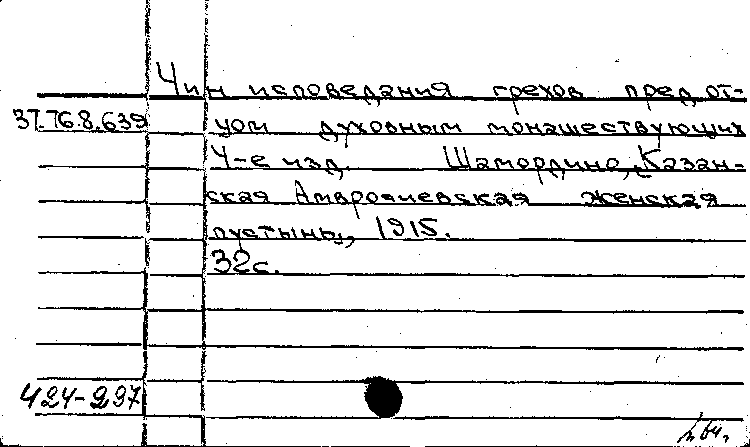 Чин исповедания грехов пред от-
37.76.8.639 цом духовным монашествующих
4-е изд. Шамордино, Казан-
ская Амвросиевская женская
пустынь, 1915.
32с.
424-297